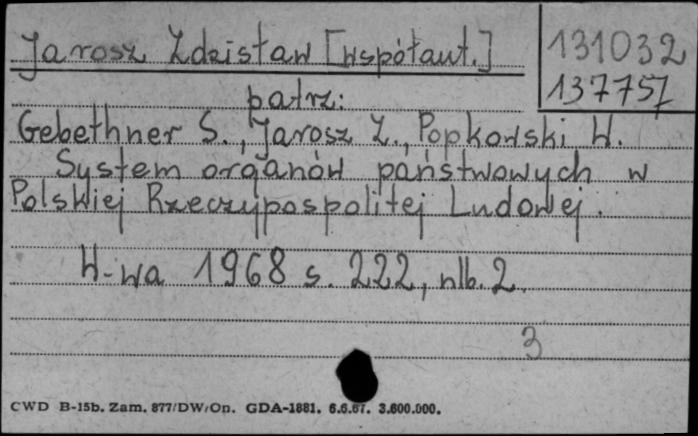 Jarosz Zdzisław [współaut.]
131032
137757
patrz:
Gebethner S., Jarosz Z., Popkowski W.
System organów państwowych w
Polskiej Rzeczypospolitej Ludowej.
W-wa 1968 s. 222, nlb. 2.
3
CWD B-15b. Zam. 877/DW/On. GDA-1881. 6.6.67. 3.600.000.